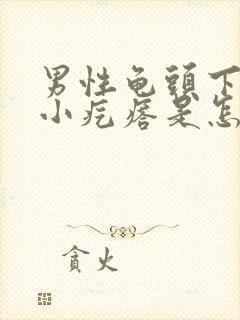 男性龟頭下
小疙瘩是怎
贪火